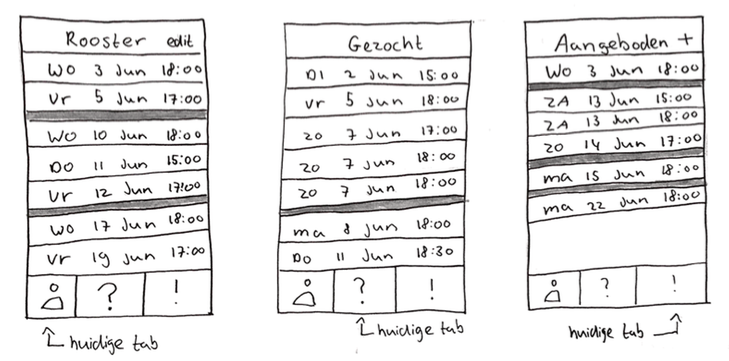 Rooster edit
Wo 3 Jun 18:00
Vr 5 Jun 17:00
Wo 10 Jun 18:00
Do 11 Jun 15:00
Vr 12 Jun 17:00
Wo 17 Jun 18:00
Vr 19 Jun 17:00
? !
huidige tab
Gezocht
Di 2 Jun 15:00
Vr 5 Jun 18:00
Zo 7 Jun 17:00
Zo 7 Jun 18:00
Zo 7 Jun 18:00
ma 8 Jun 18:00
Do 11 Jun 18:30
? !
huidige tab
Aangeboden +
Wo 3 Jun 18:00
ZA 13 Jun 15:00
ZA 13 Jun 18:00
Zo 14 Jun 17:00
ma 15 Jun 18:00
ma 22 Jun 18:00
? !
huidige tab